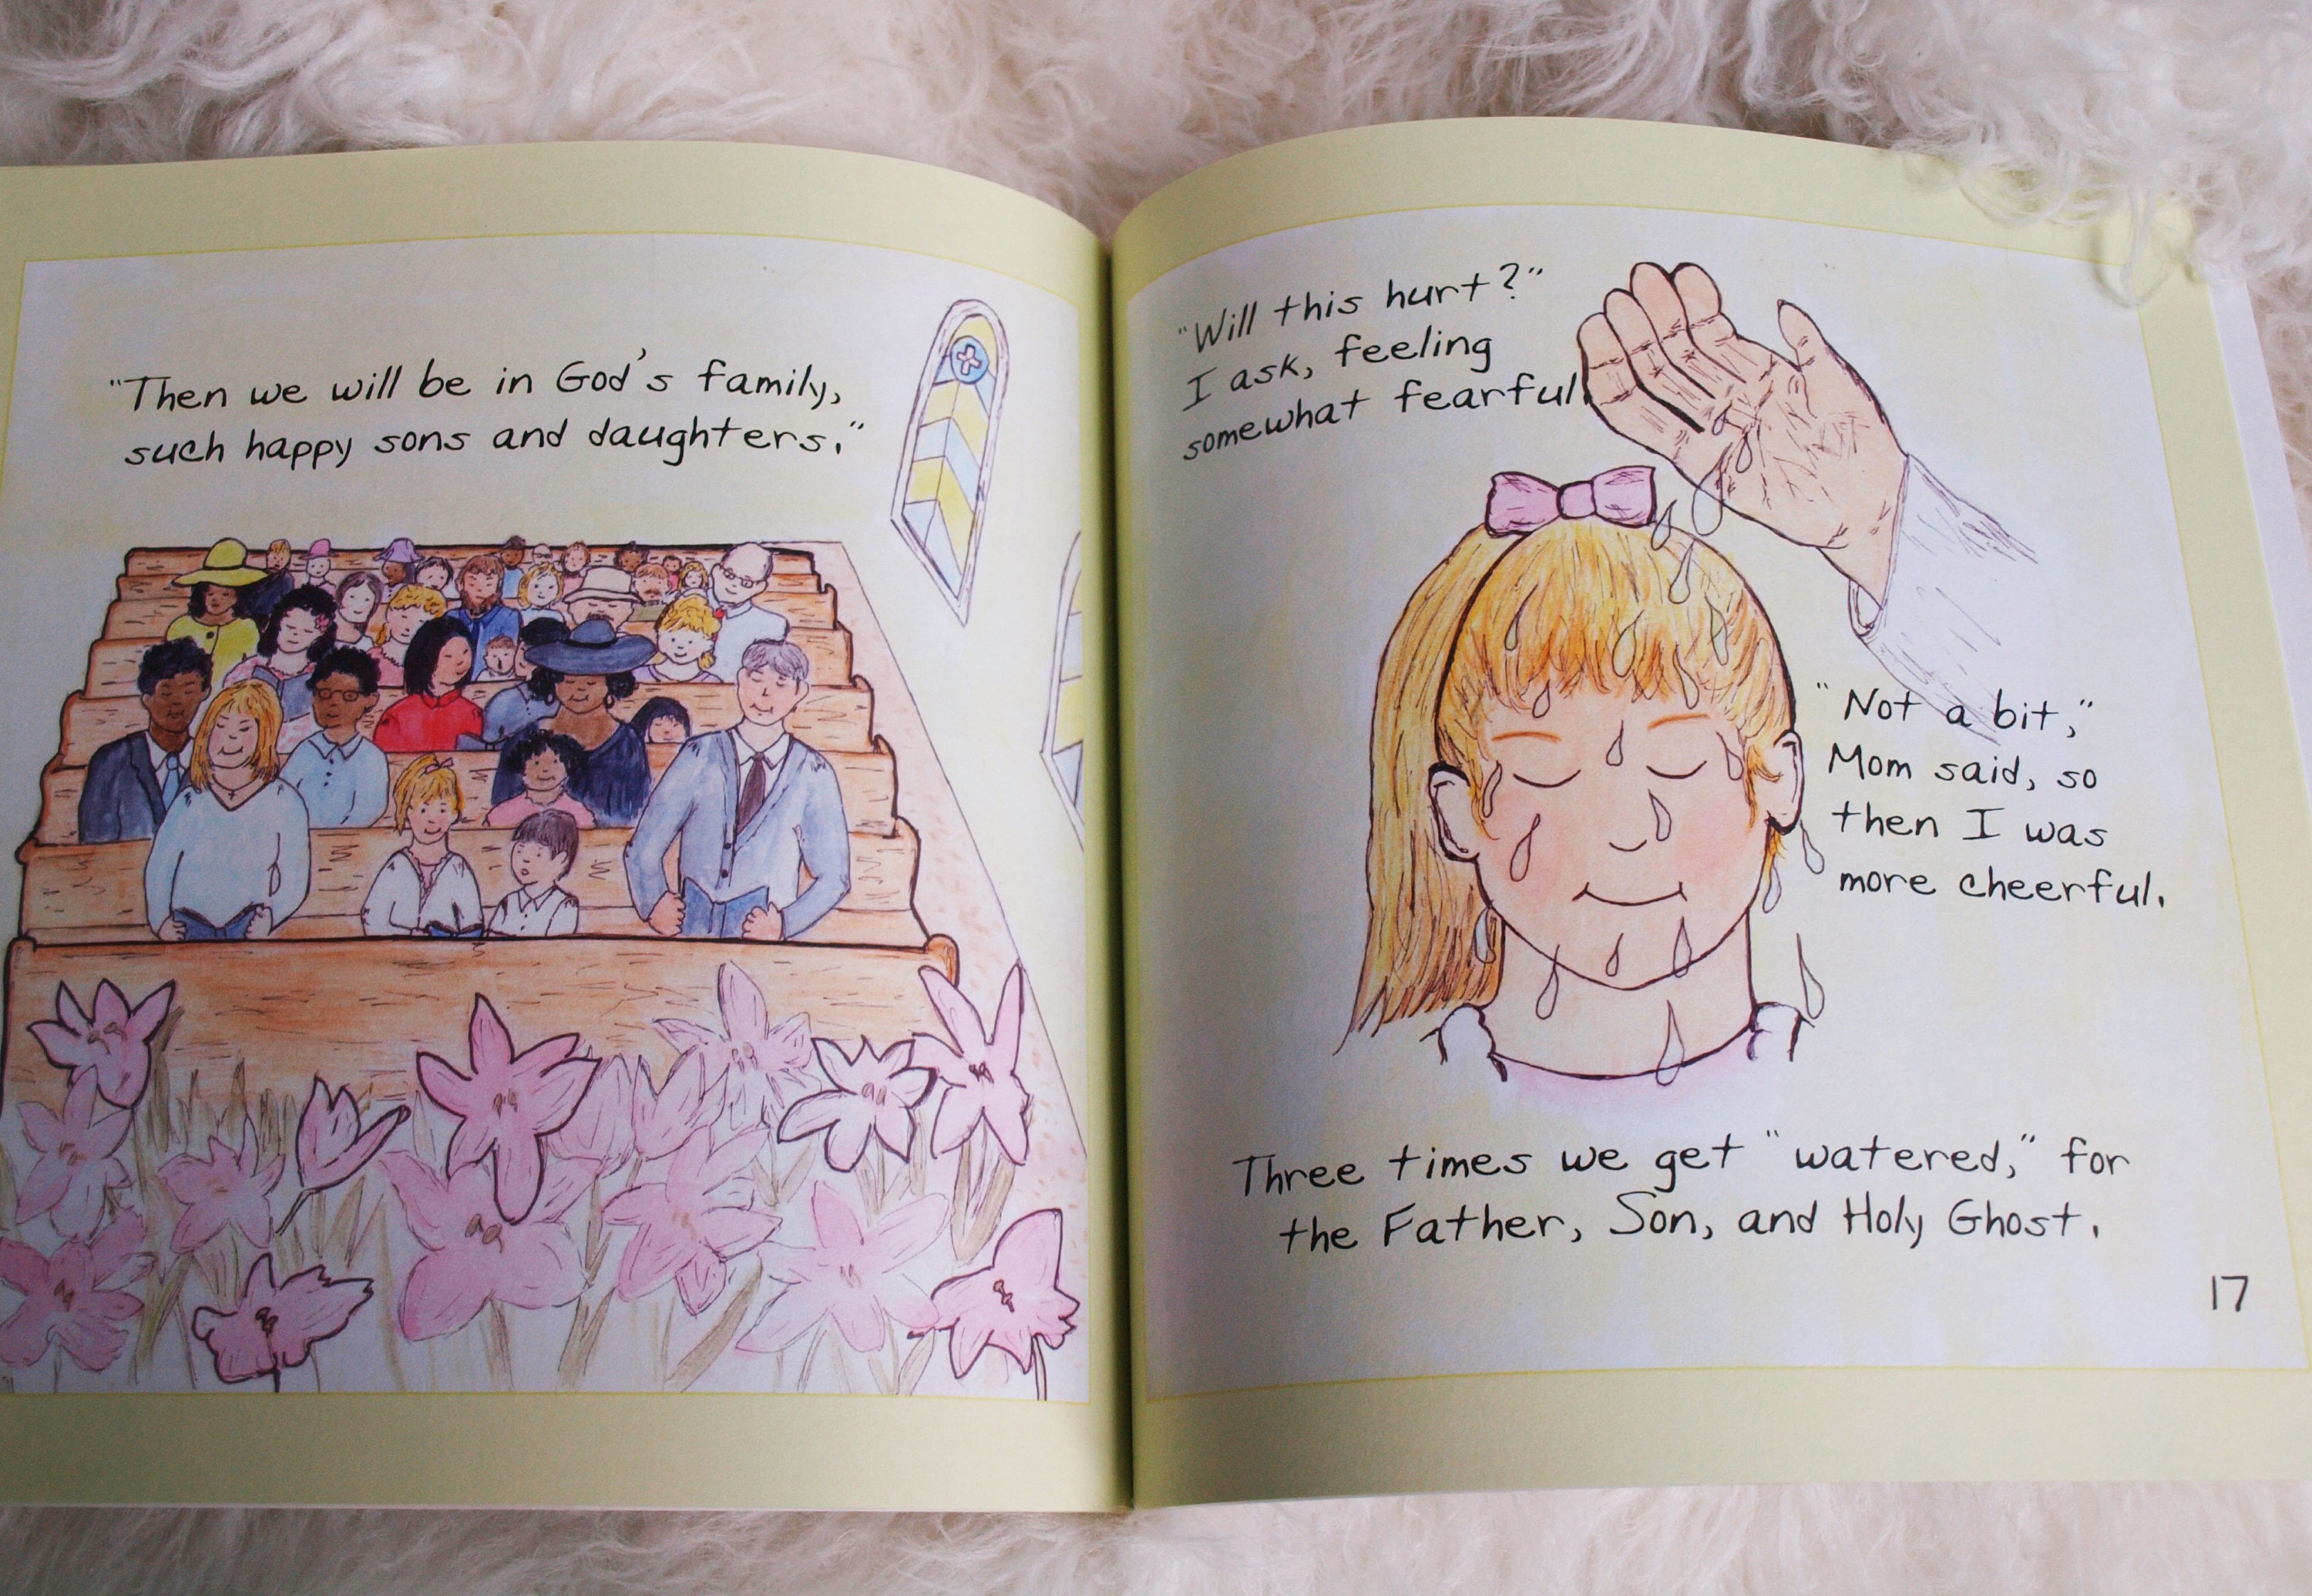 "Then we will be in God's family,
such happy sons and daughters."
"Will this hurt?"
I ask, feeling
somewhat fearful.
"Not a bit,"
Mom said, so
then I was
more cheerful.
Three times we get "watered," for
the Father, Son, and Holy Ghost.
17